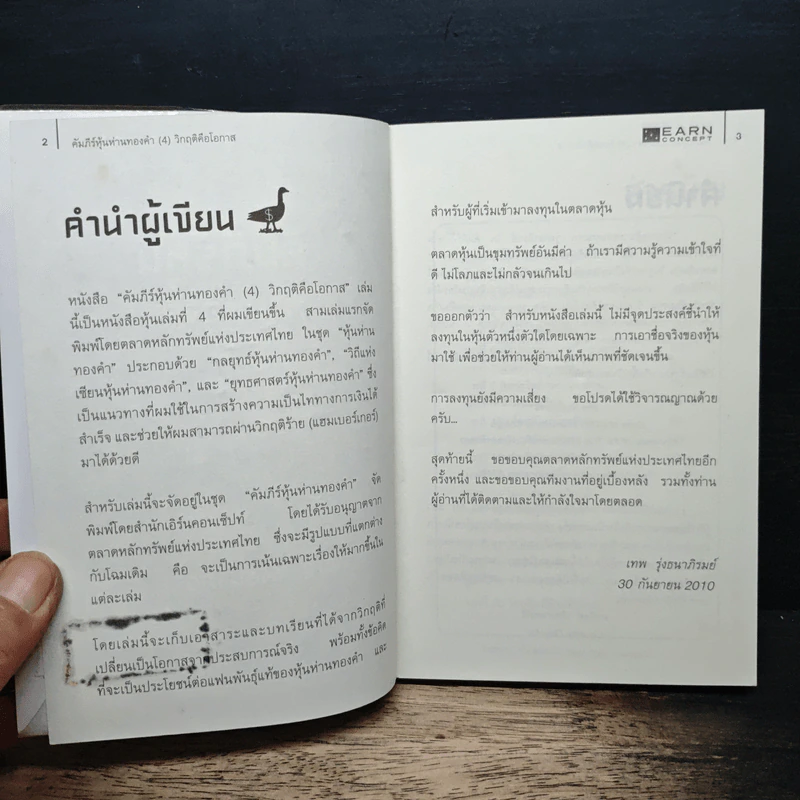 2
คัมภีร์หุ้นห่านทองคำ (4) วิกฤติคือโอกาส
คำนำผู้เขียน
$
หนังสือ “คัมภีร์หุ้นห่านทองคำ (4) วิกฤติคือโอกาส” เล่ม
นี้เป็นหนังสือหุ้นเล่มที่ 4 ที่ผมเขียนขึ้น สามเล่มแรกจัด
พิมพ์โดยตลาดหลักทรัพย์แห่งประเทศไทย ในชุด “หุ้นห่าน
ทองคำ” ประกอบด้วย “กลยุทธ์หุ้นห่านทองคำ”, “วิถีแห่ง
เซียนหุ้นห่านทองคำ”, และ “ยุทธศาสตร์หุ้นห่านทองคำ” ซึ่ง
เป็นแนวทางที่ผมใช้ในการสร้างความเป็นไททางการเงินได้
สำเร็จ และช่วยให้ผมสามารถผ่านวิกฤติร้าย (แฮมเบอร์เกอร์)
มาได้ด้วยดี
สำหรับเล่มนี้จะจัดอยู่ในชุด “คัมภีร์หุ้นห่านทองคำ” จัด
พิมพ์โดยสำนักเอิร์นคอนเซ็ปท์ โดยได้รับอนุญาตจาก
ตลาดหลักทรัพย์แห่งประเทศไทย ซึ่งจะมีรูปแบบที่แตกต่าง
กับโฉมเดิม คือ จะเป็นการเน้นเฉพาะเรื่องให้มากขึ้นใน
แต่ละเล่ม
โดยเล่มนี้จะเก็บเอาสาระและบทเรียนที่ได้จากวิกฤติที่
เปลี่ยนเป็นโอกาสจากประสบการณ์จริง พร้อมทั้งข้อคิด
ที่จะเป็นประโยชน์ต่อแฟนพันธุ์แท้ของหุ้นห่านทองคำ และ
EARN
CONCEPT
3
สำหรับผู้ที่เริ่มเข้ามาลงทุนในตลาดหุ้น
ตลาดหุ้นเป็นขุมทรัพย์อันมีค่า ถ้าเรามีความรู้ความเข้าใจที่
ดี ไม่โลภและไม่กลัวจนเกินไป
ขอออกตัวว่า สำหรับหนังสือเล่มนี้ ไม่มีจุดประสงค์ชี้นำให้
ลงทุนในหุ้นตัวหนึ่งตัวใดโดยเฉพาะ การเอาชื่อจริงของหุ้น
มาใช้ เพื่อช่วยให้ท่านผู้อ่านได้เห็นภาพที่ชัดเจนขึ้น
การลงทุนยังมีความเสี่ยง ขอโปรดได้ใช้วิจารณญาณด้วย
ครับ...
สุดท้ายนี้ ขอขอบคุณตลาดหลักทรัพย์แห่งประเทศไทยอีก
ครั้งหนึ่ง และขอขอบคุณทีมงานที่อยู่เบื้องหลัง รวมทั้งท่าน
ผู้อ่านที่ได้ติดตามและให้กำลังใจมาโดยตลอด
เทพ รุ่งธนาภิรมย์
30 กันยายน 2010